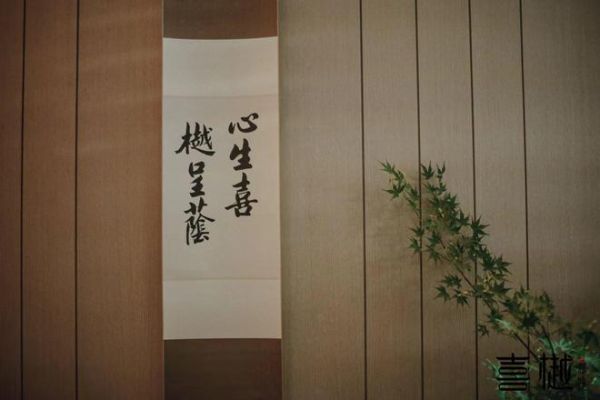 心生喜
樾呈蔭
喜樾